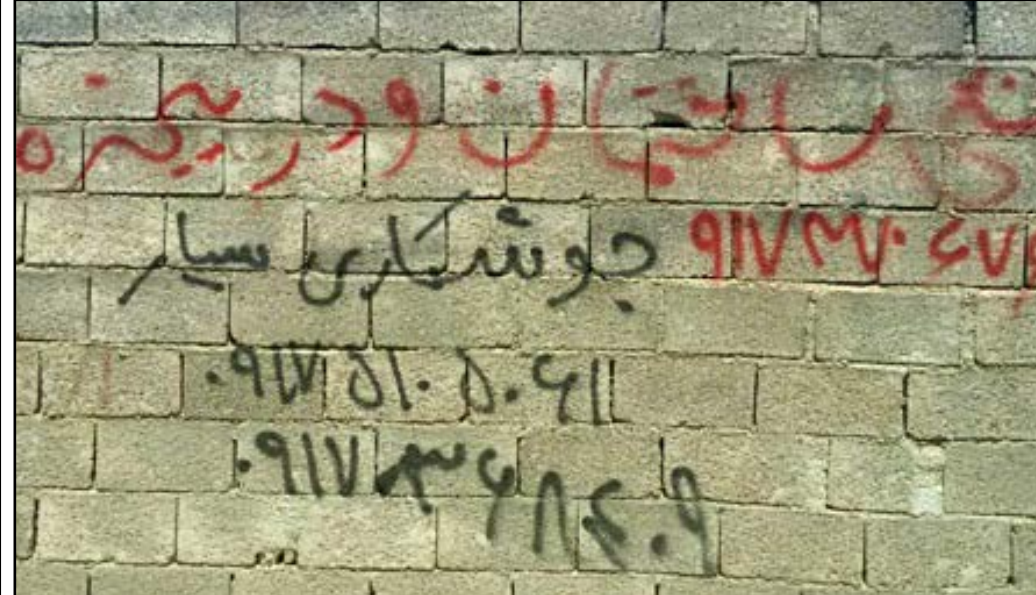 ساختمان و در پنجره
۹۱۷۳۷۰۶۷
جوشکاری سیار
۰۹۱۷ ۵۱۰ ۵۰۶۱
۰۹۱۷ ۳۶۸۴۰۹